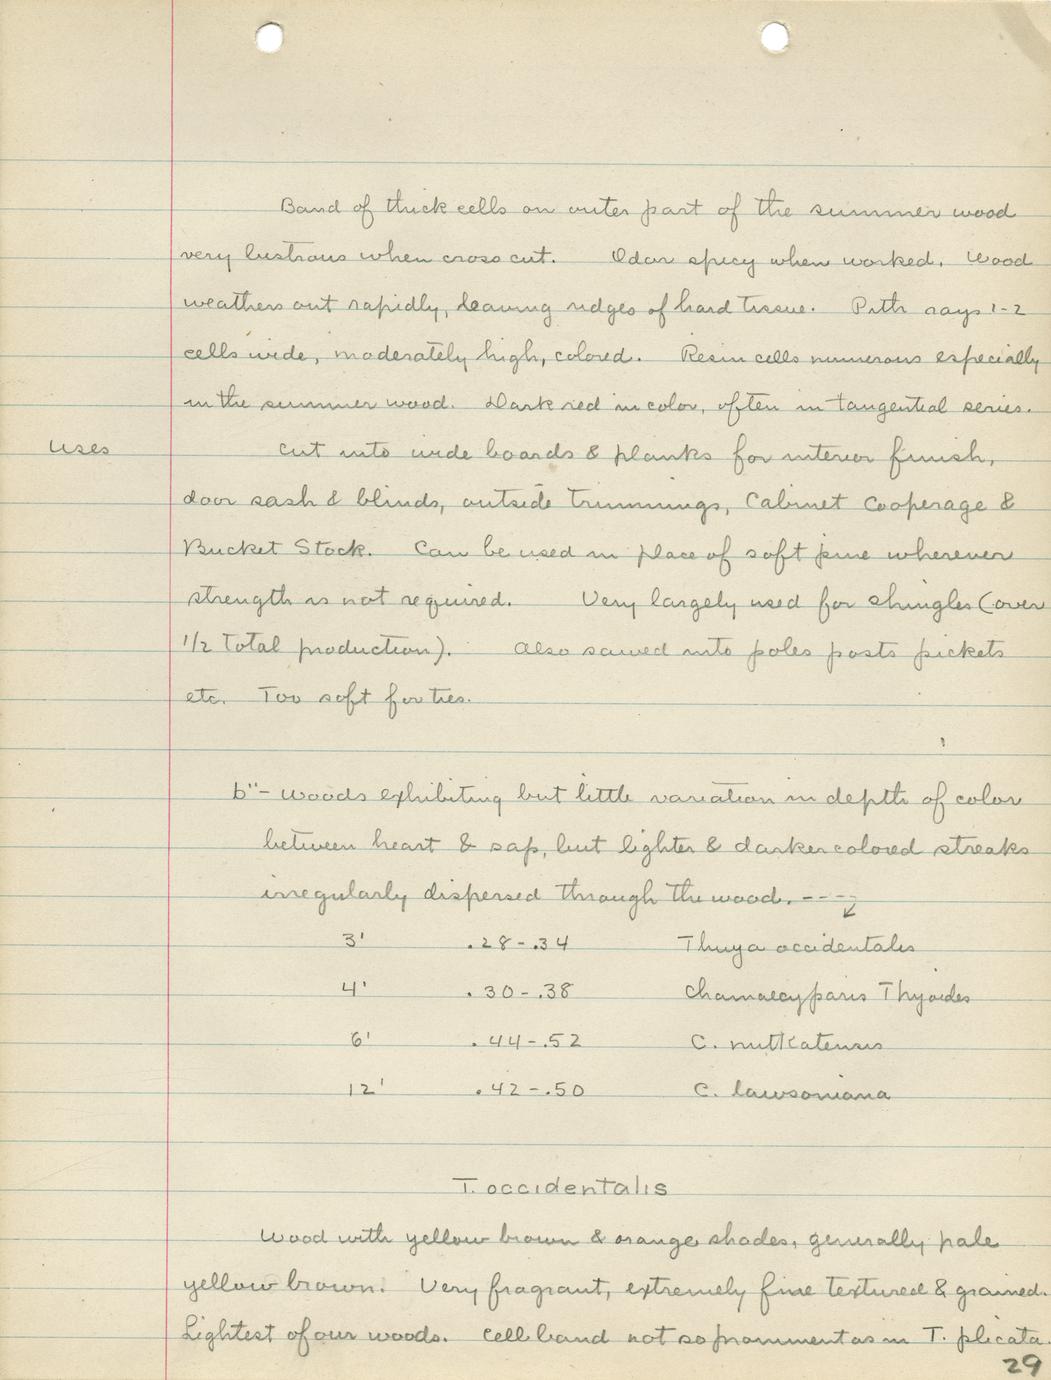 Band of thick cells on outer part of the summer wood
very lustrous when cross cut. Odor spicy when worked. Wood
weathers out rapidly, leaving ridges of hard tissue. Pith rays 1-2
cells wide, moderately high, colored. Resin cells numerous especially
in the summer wood. Dark red in color, often in tangential series.
Uses
Cut into wide boards & planks for interior finish,
door sash & blinds, outside trimmings, Cabinet Cooperage &
Bucket Stock. Can be used in place of soft pine wherever
strength is not required. Very largely used for shingles (over
1/2 total production). Also sawed into poles posts pickets
etc. Too soft for ties.
b"- Woods exhibiting but little variation in depth of color
between heart & sap, but lighter & darker colored streaks
irregularly dispersed through the wood. ---
3' .28-.34 Thuya occidentalis
4' .30-.38 Chamaecyparis Thyoides
6' .44-.52 C. nutkatensis
12' .42-.50 C. lawsoniana
T. occidentalis
Wood with yellow brown & orange shades, generally pale
yellow brown. Very fragrant, extremely fine textured & grained.
Lightest of our woods. Cell band not so prominent as in T. plicata.
29